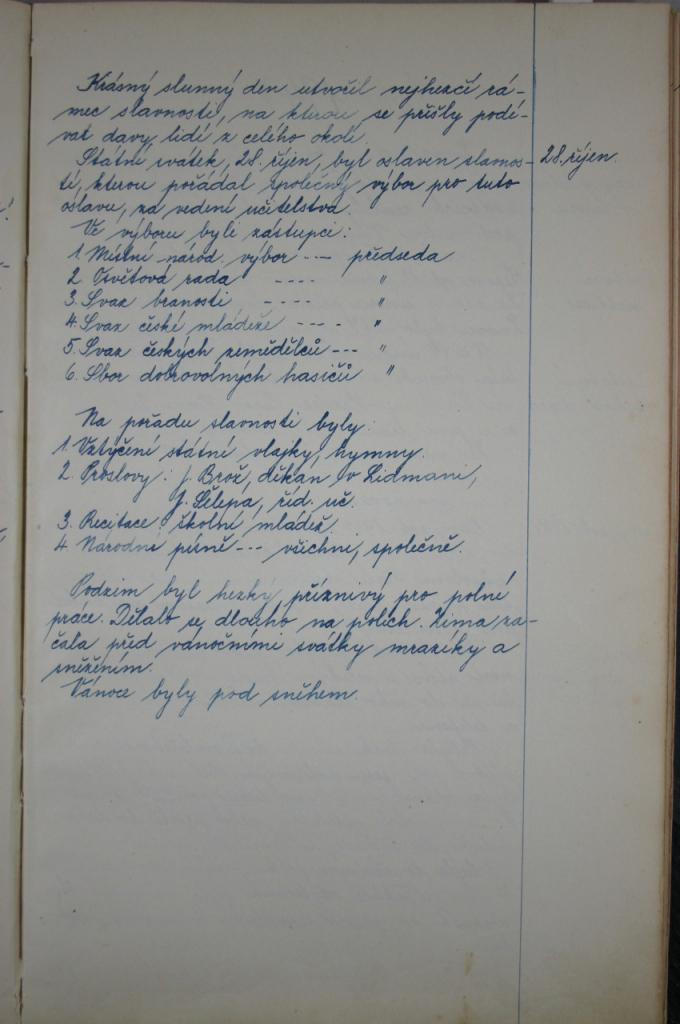 Krásný slunný den utvořil nejhezčí rá-
mec slavnosti, na kterou se přišly podí-
vat davy lidí z celého okolí.
Státní svátek, 28. říjen, byl oslaven slavnos- 28. říjen.
tí, kterou pořádal společný výbor pro tuto
oslavu, za vedení učitelstva.
Ve výboru byli zástupci:
1. Místní národ. výbor --- předseda
2. Osvětová rada ---- "
3. Svaz brannosti ---- "
4. Svaz české mládeže ---- "
5. Svaz českých zemědělců --- "
6. Sbor dobrovolných hasičů "
Na pořadu slavnosti byly:
1. Vztyčení státní vlajky, hymny.
2. Proslovy: J. Brož, děkan v Lidmani,
J. Šlépa, říd. uč.
3. Recitace: školní mládež.
4. Národní písně --- všichni, společně.
Podzim byl hezký, příznivý pro polní
práce. Dělalo se dlouho na polích. Zima za-
čala před vánočními svátky mrazíky a
sněžením.
Vánoce byly pod sněhem.